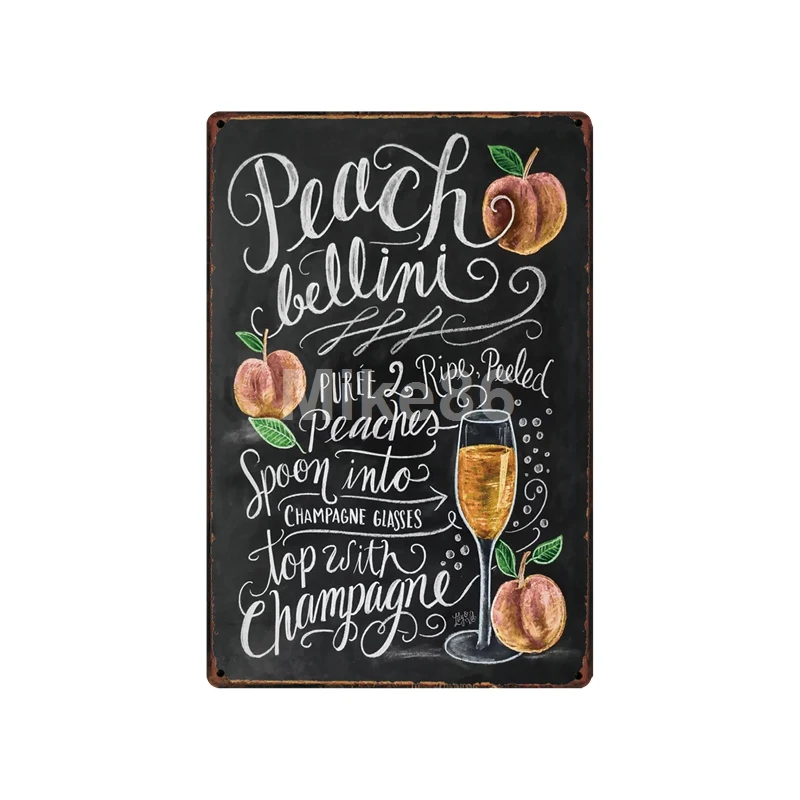 Peach
bellini
PURÉE 2 Ripe, Peeled
Peaches
Spoon into
CHAMPAGNE GLASSES
top with
Champagne
Mike86